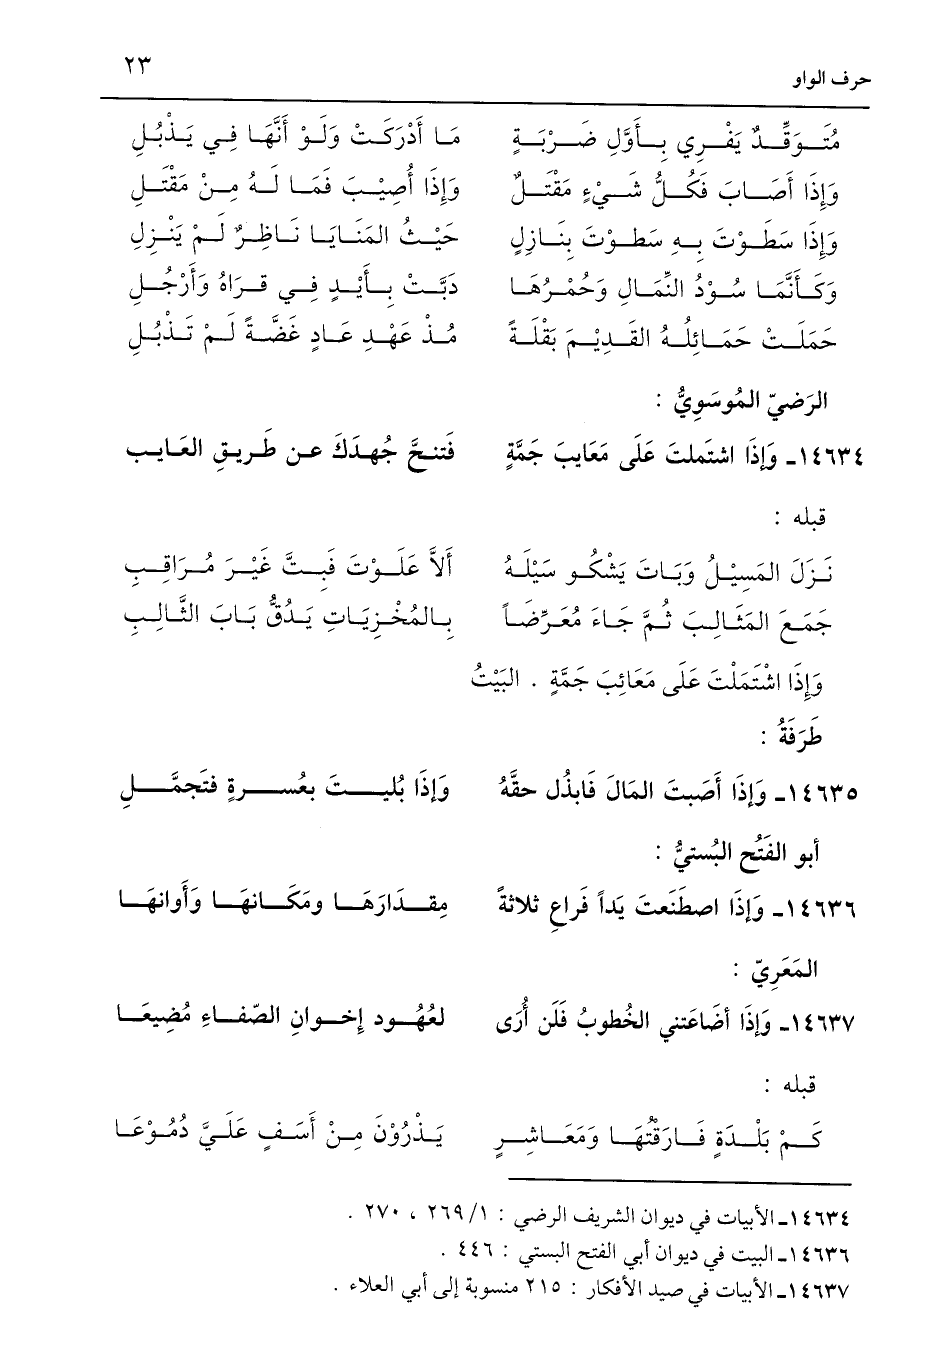 ٢٣
حرف الواو
مُتَوَقِّدٌ يَفْرِي بِأَوَّلِ ضَرْبَةٍ مَا أَدْرَكَتْ وَلَوْ أَنَّهَا فِي يَذْبُلِ
وَإِذَا أَصَابَ فَكُلُّ شَيْءٍ مَقْتَلٌ وَإِذَا أُصِيْبَ فَمَا لَهُ مِنْ مَقْتَلِ
وَإِذَا سَطَوْتَ بِهِ سَطَوْتَ بِنَازِلٍ حَيْثُ المَنَايَا نَاظِرٌ لَمْ يَنْزِلِ
وَكَأَنَّمَا سُوْدُ النِّمَالِ وَحُمْرُهَا دَبَّتْ بِأَيْدٍ فِي قَرَاهُ وَأَرْجُلِ
حَمَلَتْ حَمَائِلُهُ القَدِيْمَ بَقْلَةً مُذْ عَهْدِ عَادٍ غَضَّةً لَمْ تَذْبُلِ
الرَضيّ المُوسَوِيُّ :
١٤٦٣٤ـ وَإِذَا اشتَملتَ عَلَى مَعَايبَ جَمَّةٍ فَتنحَّ جُهدَكَ عن طَريقِ العَايبِ
قبله :
نَزَلَ المَسِيْلُ وَبَاتَ يَشْكُو سَيْلَهُ أَلاَّ عَلَوْتَ فَبِتَّ غَيْرَ مُرَاقِبِ
جَمَعَ المَثَالِبَ ثُمَّ جَاءَ مُعَرِّضَاً بِالمُخْزِيَاتِ يَدُقُّ بَابَ الثَّالِبِ
وَإِذَا اشْتَمَلْتَ عَلَى مَعَائِبَ جَمَّةٍ . البَيْتُ
طَرَفَةُ :
١٤٦٣٥ـ وَإِذَا أَصَبتَ المَالَ فَابذُل حقَّهُ وَإِذَا بُليتَ بعُسرةٍ فتَجمَّلِ
أبو الفَتُح البُستيُّ :
١٤٦٣٦ـ وَإِذَا اصطَنَعتَ يَداً فَراعِ ثلاثةً مِقدَارَهَا ومَكَانهَا وَأَوانهَا
المَعَريّ :
١٤٦٣٧ـ وَإِذَا أضَاعَتني الخُطوبُ فَلَن أُرَى لعُهُود إخوانِ الصّفَاءِ مُضيعَا
قبله :
كَمْ بَلْدَةٍ فَارَقْتُهَا وَمَعَاشِرٍ يَذْرُوْنَ مِنْ أَسَفٍ عَلَيَّ دُمُوْعَا
١٤٦٣٤ـ الأبيات في ديوان الشريف الرضي : ٢٦٩/١ ، ٢٧٠ .
١٤٦٣٦ـ البيت في ديوان أبي الفتح البستي : ٤٤٦ .
١٤٦٣٧ـ الأبيات في صيد الأفكار : ٢١٥ منسوبة إلى أبي العلاء .